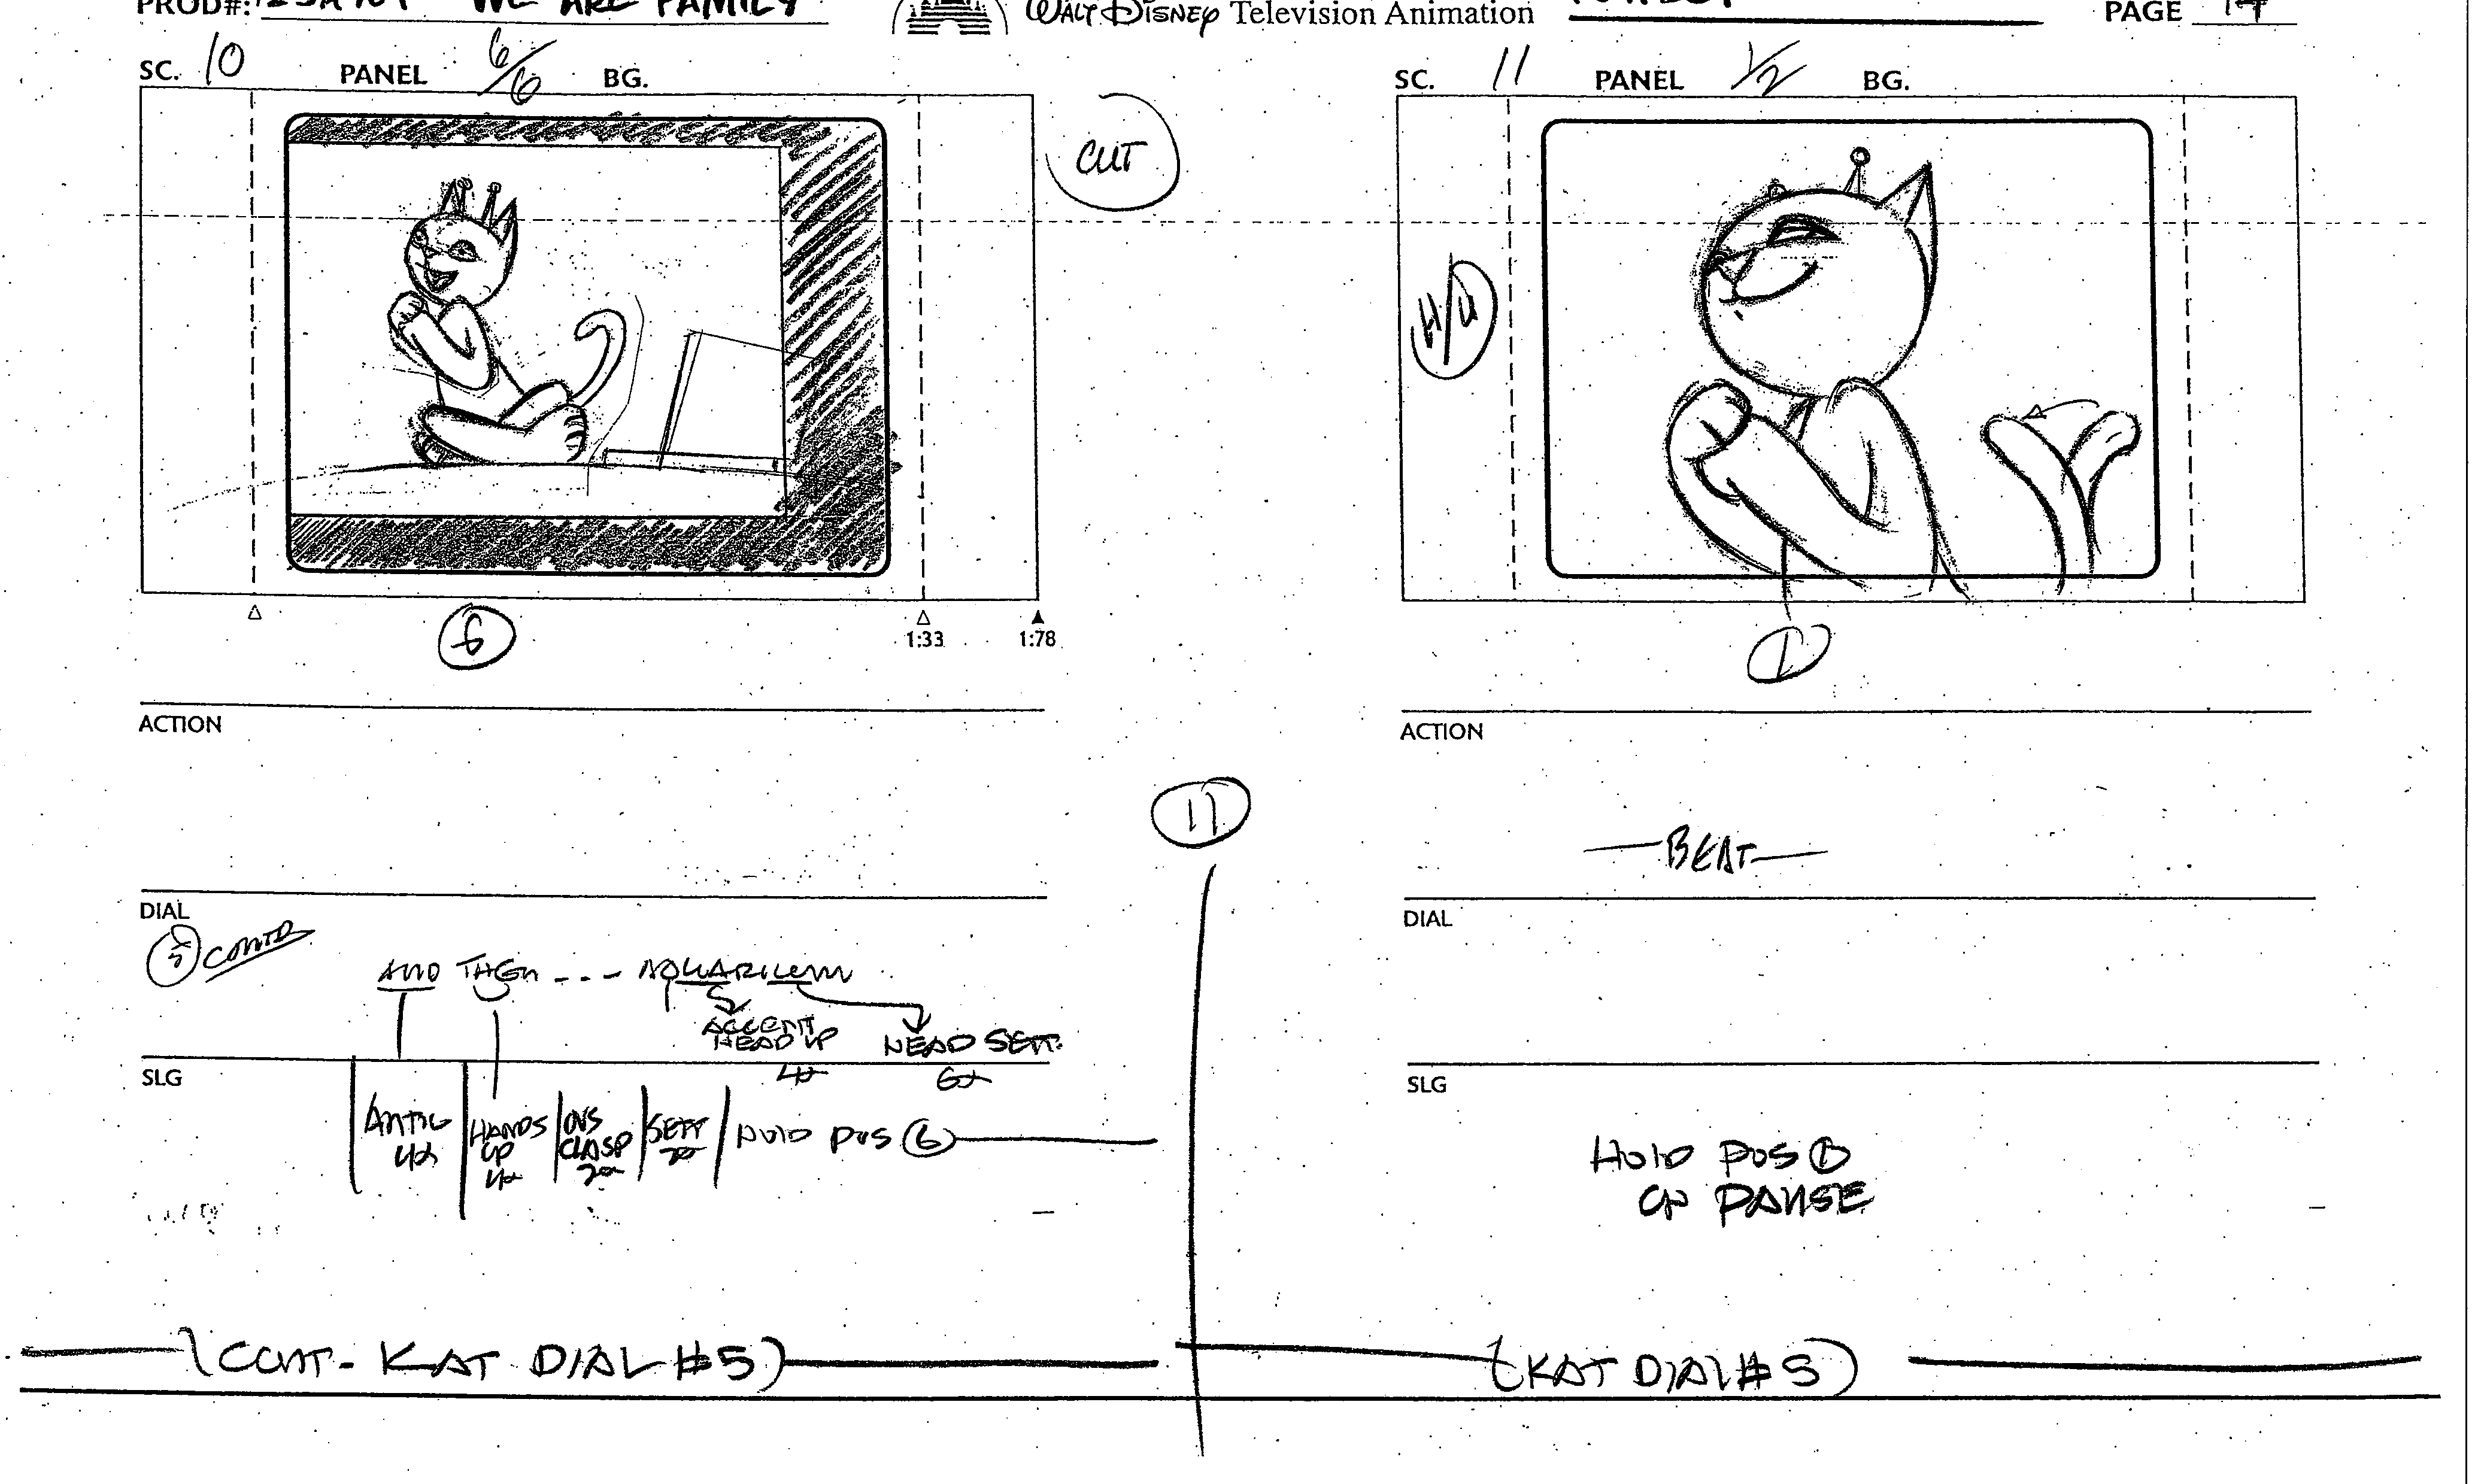 PROD#: WE ARE FAMILY
WALT DISNEY Television Animation
PAGE 14
SC. 10 PANEL 6/6 BG.
CUT
6
1:33 1:78
ACTION
DIAL
5 CONTD
AND THEN --- AQUARIUM
ACCENT
HEAD UP
4x
HEAD SETT.
6x
SLG
ANTIC
4x
HANDS
UP
4x
OVS
CLASP
2x
SETT
HOLD POS 6
(CONT- KAT DIAL #5)
11
SC. 11 PANEL 1/2 BG.
H/U
1
ACTION
—BEAT—
DIAL
SLG
HOLD POS 1
ON PAUSE
(KAT DIAL #5)